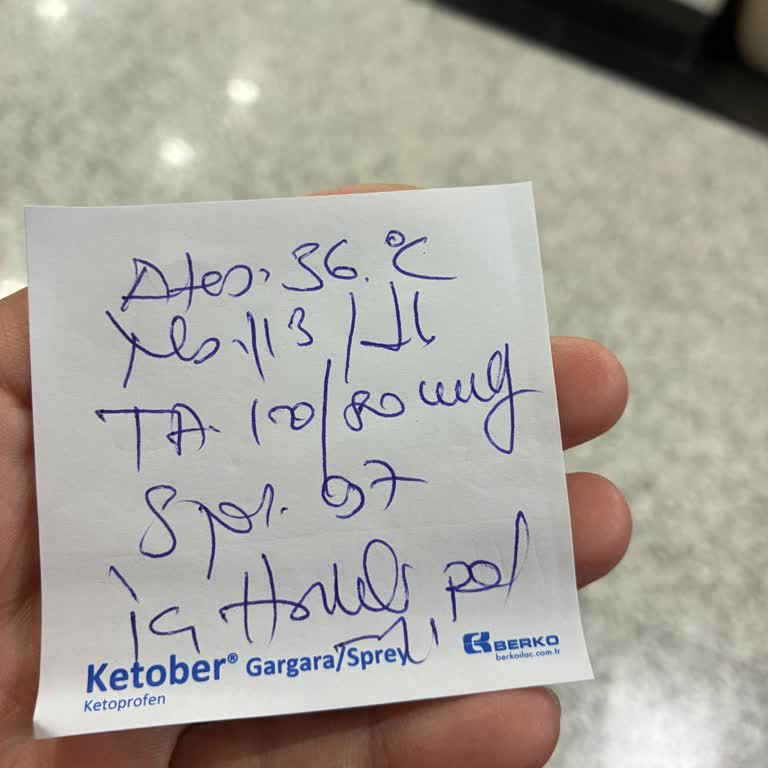 Ateş: 36. °C
Nb: 113 / dk
TA. 120/80 mmHg
Spo2. 97
iç Hastalıkları pol
Ketober® Gargara/Sprey
Ketoprofen
BERKO
berkoilac.com.tr